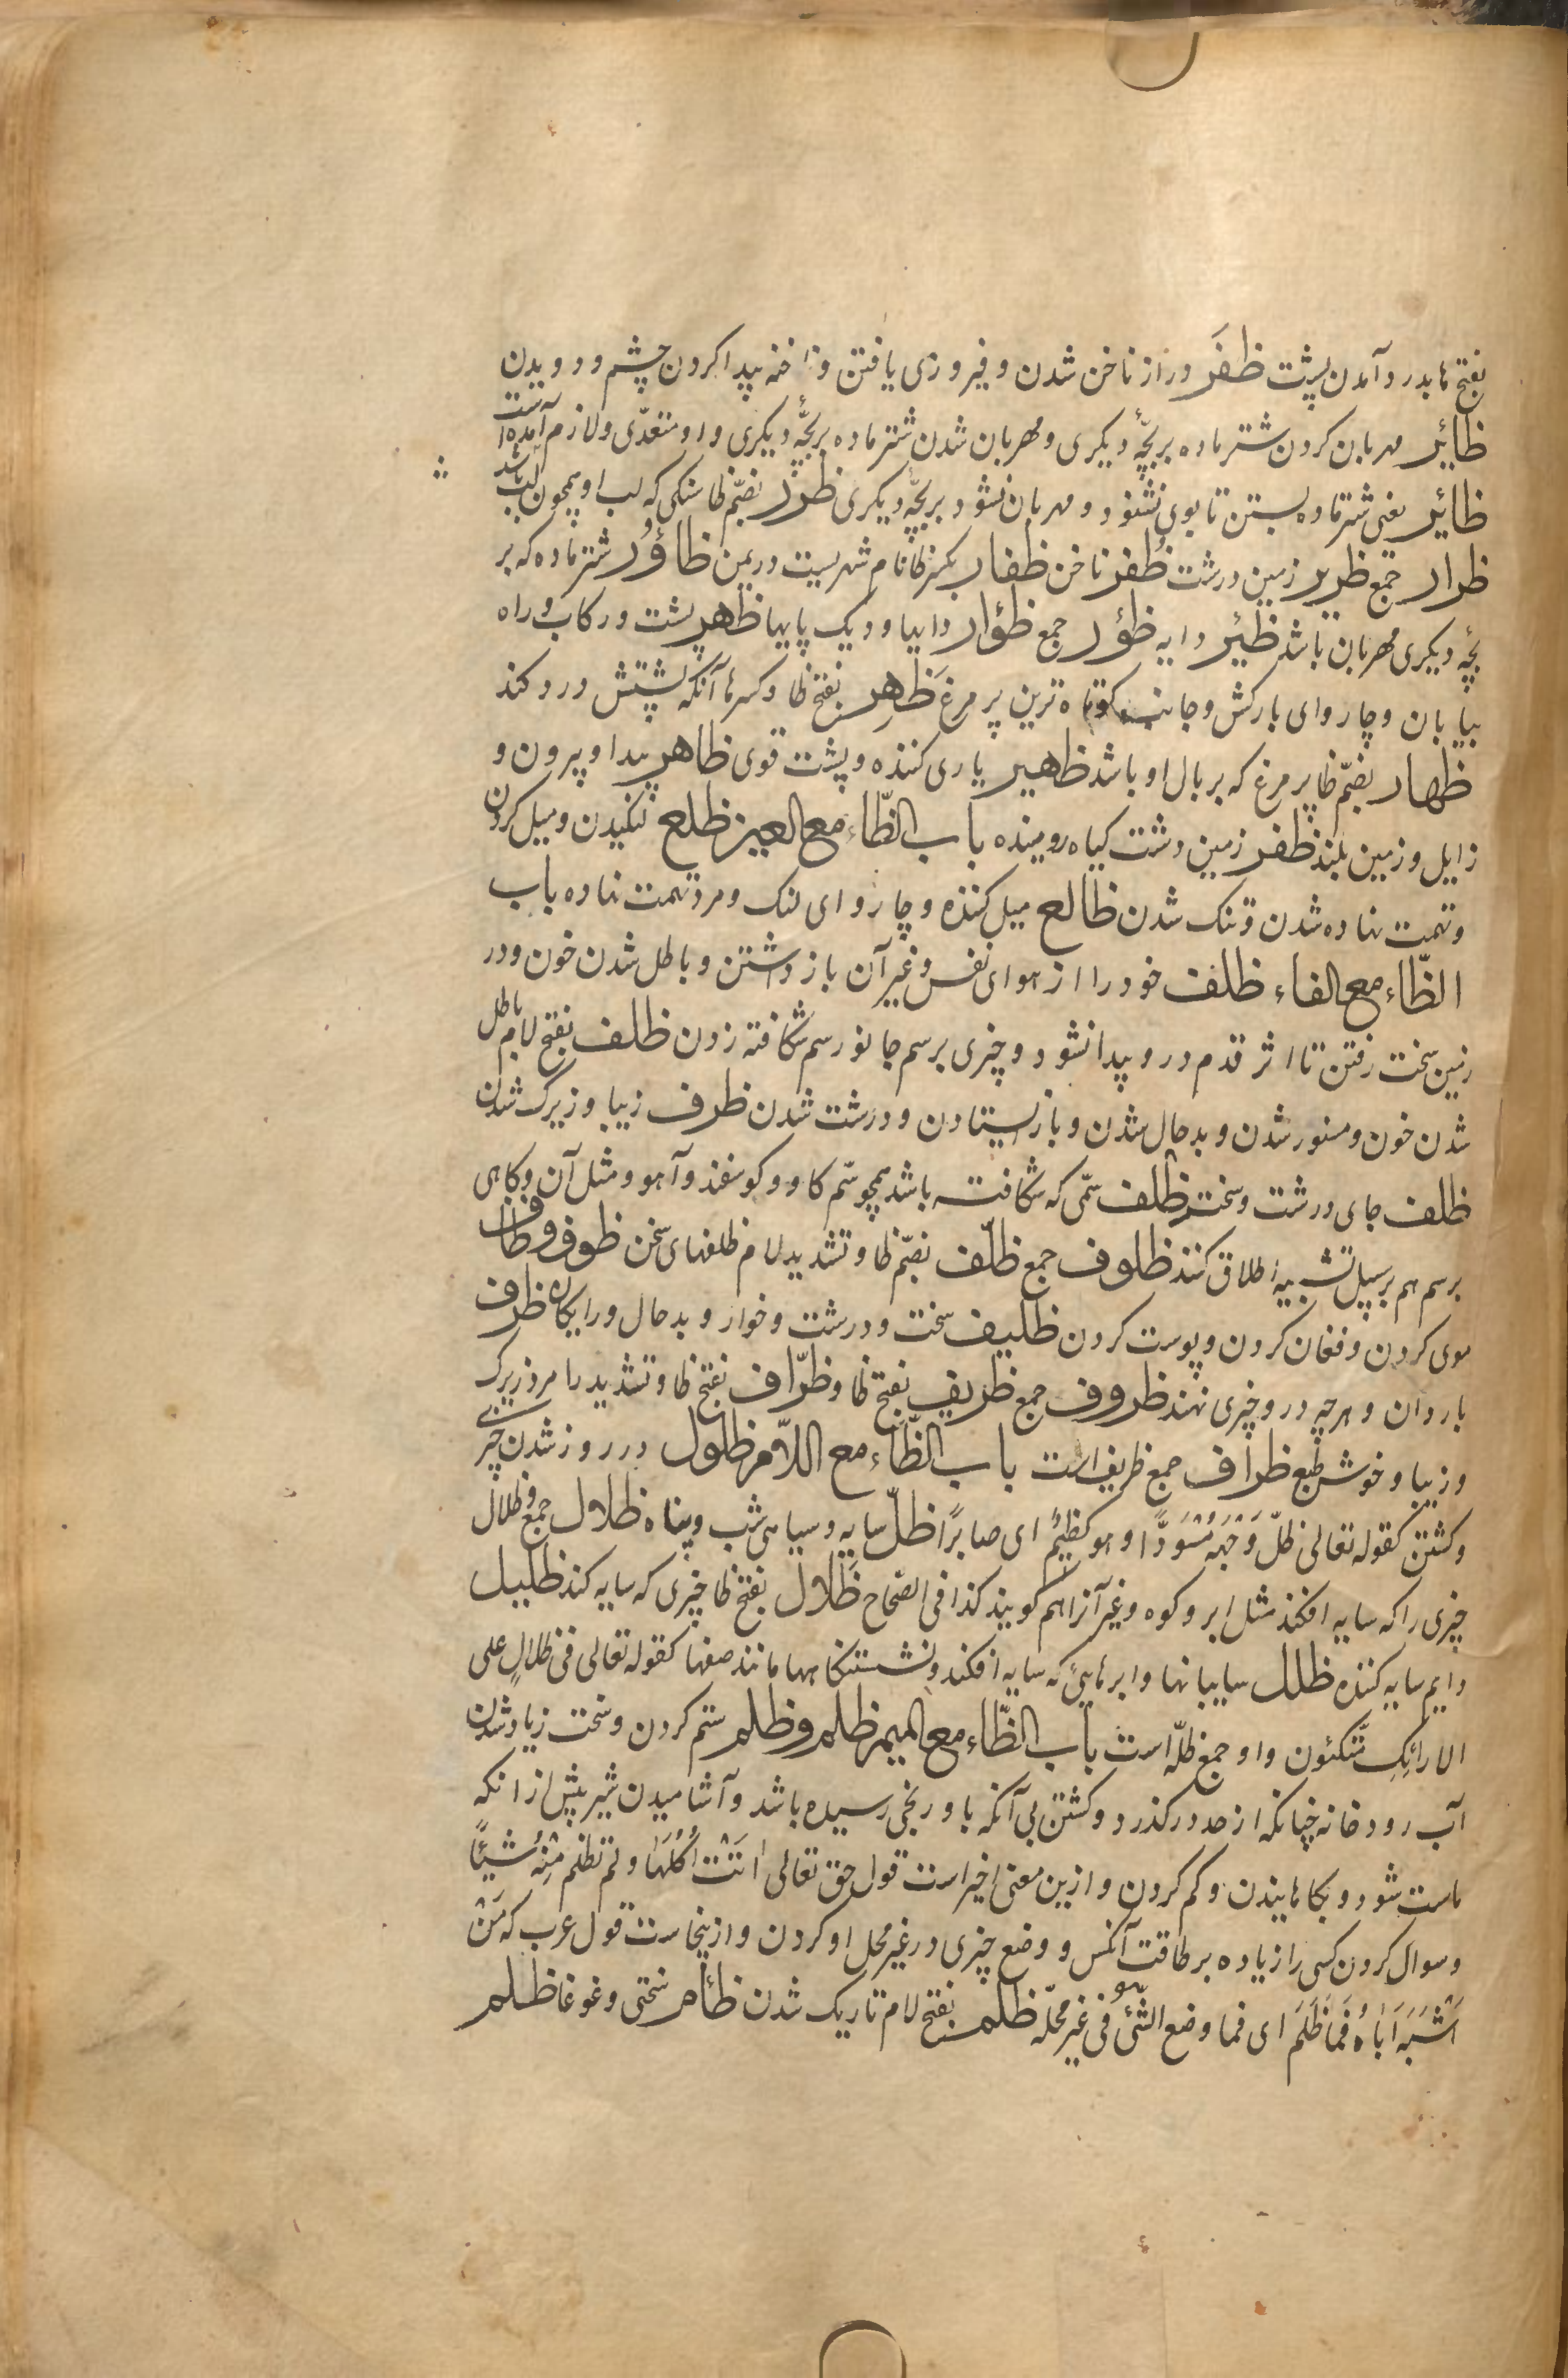 بفتح ها بدرد آمدن پشت ظفَر دراز ناخن شدن و فیروزی یافتن و ناخنه پیدا کردن چشم و دویدن
ظایر مهربان کردن شتر ماده بر بچّهٔ دیکری و مهربان شدن شتر ماده بر بچّهٔ دیکری و او متعدّی و لازم آمده است
ظایر بینی شتر ماده بستن تا بوی نشنود و مهربان نشود بر بچّهٔ دیکری ظرر بضمّ ظا سنکی که لب او همچون لب باشد
ظرار جمع ظریر زمین درشت ظُفر ناخن ظفار بکسر ظا نام شهریست در یمن ظاؤُر شتر ماده که بر
بچّه دیکری مهربان باشد ظئیر دایه ظؤر جمع ظؤار دایها و دیک پایها ظهر پشت و رکاب و راه
بیابان و چاروای بارکش و جانب کوتاه ترین پر مرغ ظَهِر بفتح ظا و کسر ها آنکه پشتش درد کند
ظهار بضمّ ظا پر مرغ که بر بال او باشد ظهیر یاری کننده و پشت قوی ظاهر پیدا و بیرون و
زایل و زمین بلند ظفر زمین دشت کیاه روینده باب الظّاء مع العین ظلع لنکیدن و میل کردن
و تهمت نهاده شدن و تنک شدن ظالع میل کننده و چاروای لنک و مرد تهمت نهاده باب
الظّاء مع الفاء ظلف خود را از هوای نفس و غیر آن باز داشتن و باطل شدن خون و در
زمین سخت رفتن تا اثر قدم در و پیدا نشود و چیزی بر سم جانور سم شکافته زدن ظلف بفتح لام باطل
شدن خون و منور شدن و بد حال شدن و باز ایستادن و درشت شدن ظرف زیبا و زیرک شدن
ظلف جای درشت و سخت ظلف سمّی که شکافته باشد همچو سّم کاو و کوسفند و آهو و مثل آن و کاهی
بر سم هم بر سبیل تشبیه اطلاق کنند ظلوف جمع ظلّف بضمّ ظا و تشدید لام ظلفهای سخن ظوف و ظاف
موی کردن و فغان کردن و پوست کردن ظلیف سخت و درشت و خوار و بد حال و رایکان ظرف
باردان و هر چه در و چیزی نهند ظروف جمع ظریف بفتح ظا و ظرّاف بفتح ظا و تشدید را مرد زیرک
و زیبا و خوش طبع ظراف جمع ظریف است باب الظّاء مع اللّام ظلول در روز شدن چیزی
و کشتن کقوله تعالی ظلّ وَجْهُه مُسْوَدًّا و هو کظیمٌ ای صابرًا ظلّ سایه و سیاهی شب و پناه ظلال جمع و ظلال
چیزی را که سایه افکند مثل ابر و کوه و غیر آنرا هم کویند کذا فی الصّحاح ظَلال بفتح ظا چیزی که سایه کند ظلیل
دایم سایه کننده ظلل سایبانها و ابر هایئ که سایه افکند و نشستنکاهها مانند صفها کقوله تعالی فی ظلالٍ علی
الارائِکِ متّکئون و او جمع ظلّه است باب الظّاء مع المیم ظلم و ظلم ستم کردن و سخت زیاد شدن
آب رود خانه چنانکه از حد درکذرد و کشتن بی آنکه با و رنجی رسیده باشد و آشامیدن شیر پیش از انکه
ماست شود و بکاهانیدن و کم کردن و ازین معنی اخیر است قول حق تعالی اتَتْ اُکُلَهَا و لم تظلم مِنْهُ شیئًا
و سوال کردن کسی را زیاده بر طاقت آنکس و وضع چیزی در غیر محل او کردن و ازینجاست قول عرب که مَنْ
اَشْبَهَ اَبَاهُ فَمَا ظَلَمَ ای فما وضع الشّیئ فی غیر محلّه ظلم بفتح لام تاریک شدن ظأم سختی و غوغا ظلم